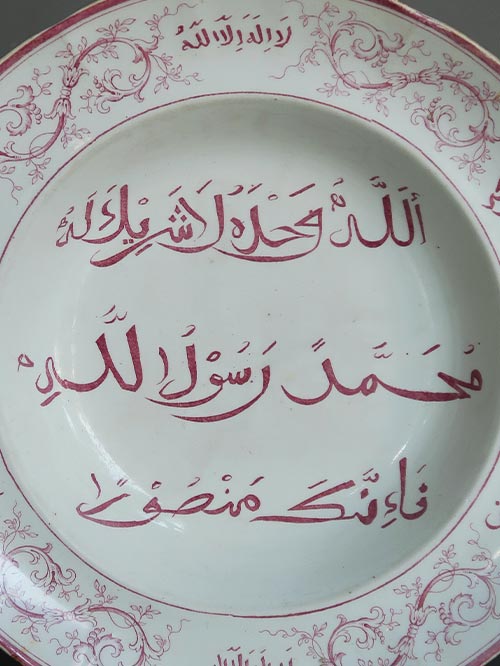 لا اله الا الله
الله وحده لا شريك له
محمدا رسول الله
فانك منصورا